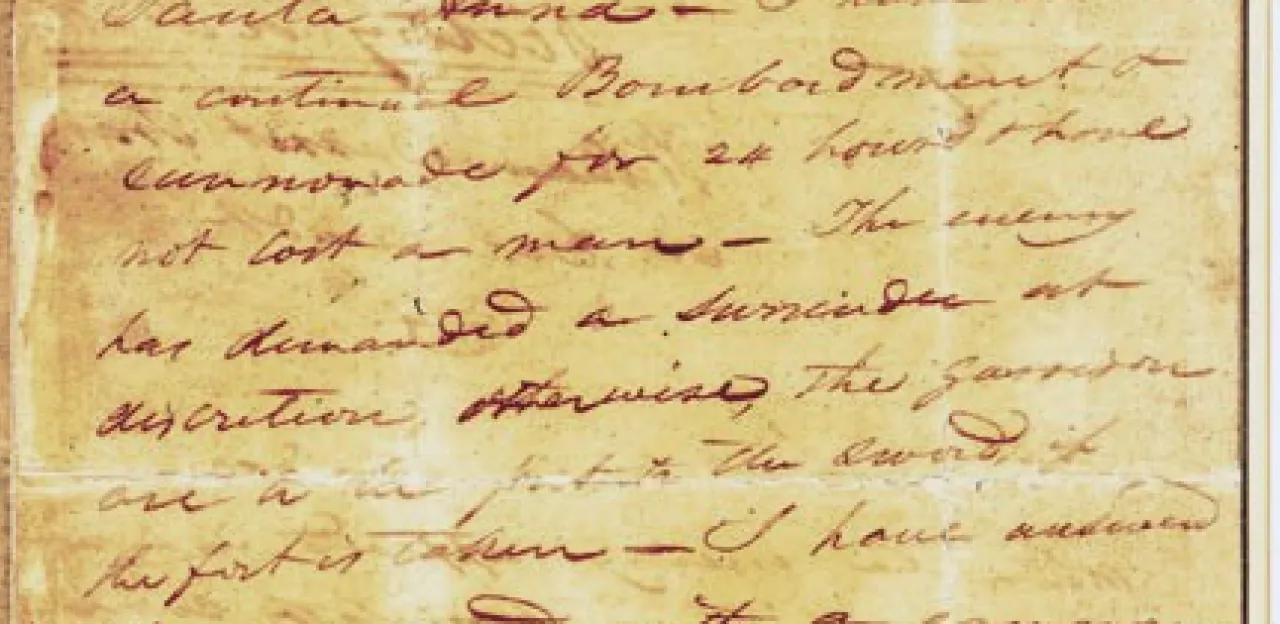 Santa Anna — I have
a continual Bombardment &
cannonade for 24 hours & have
not lost a man — The enemy
has demanded a surrender at
discretion otherwise, the garrison
are to be put to the sword, if
the fort is taken — I have answered